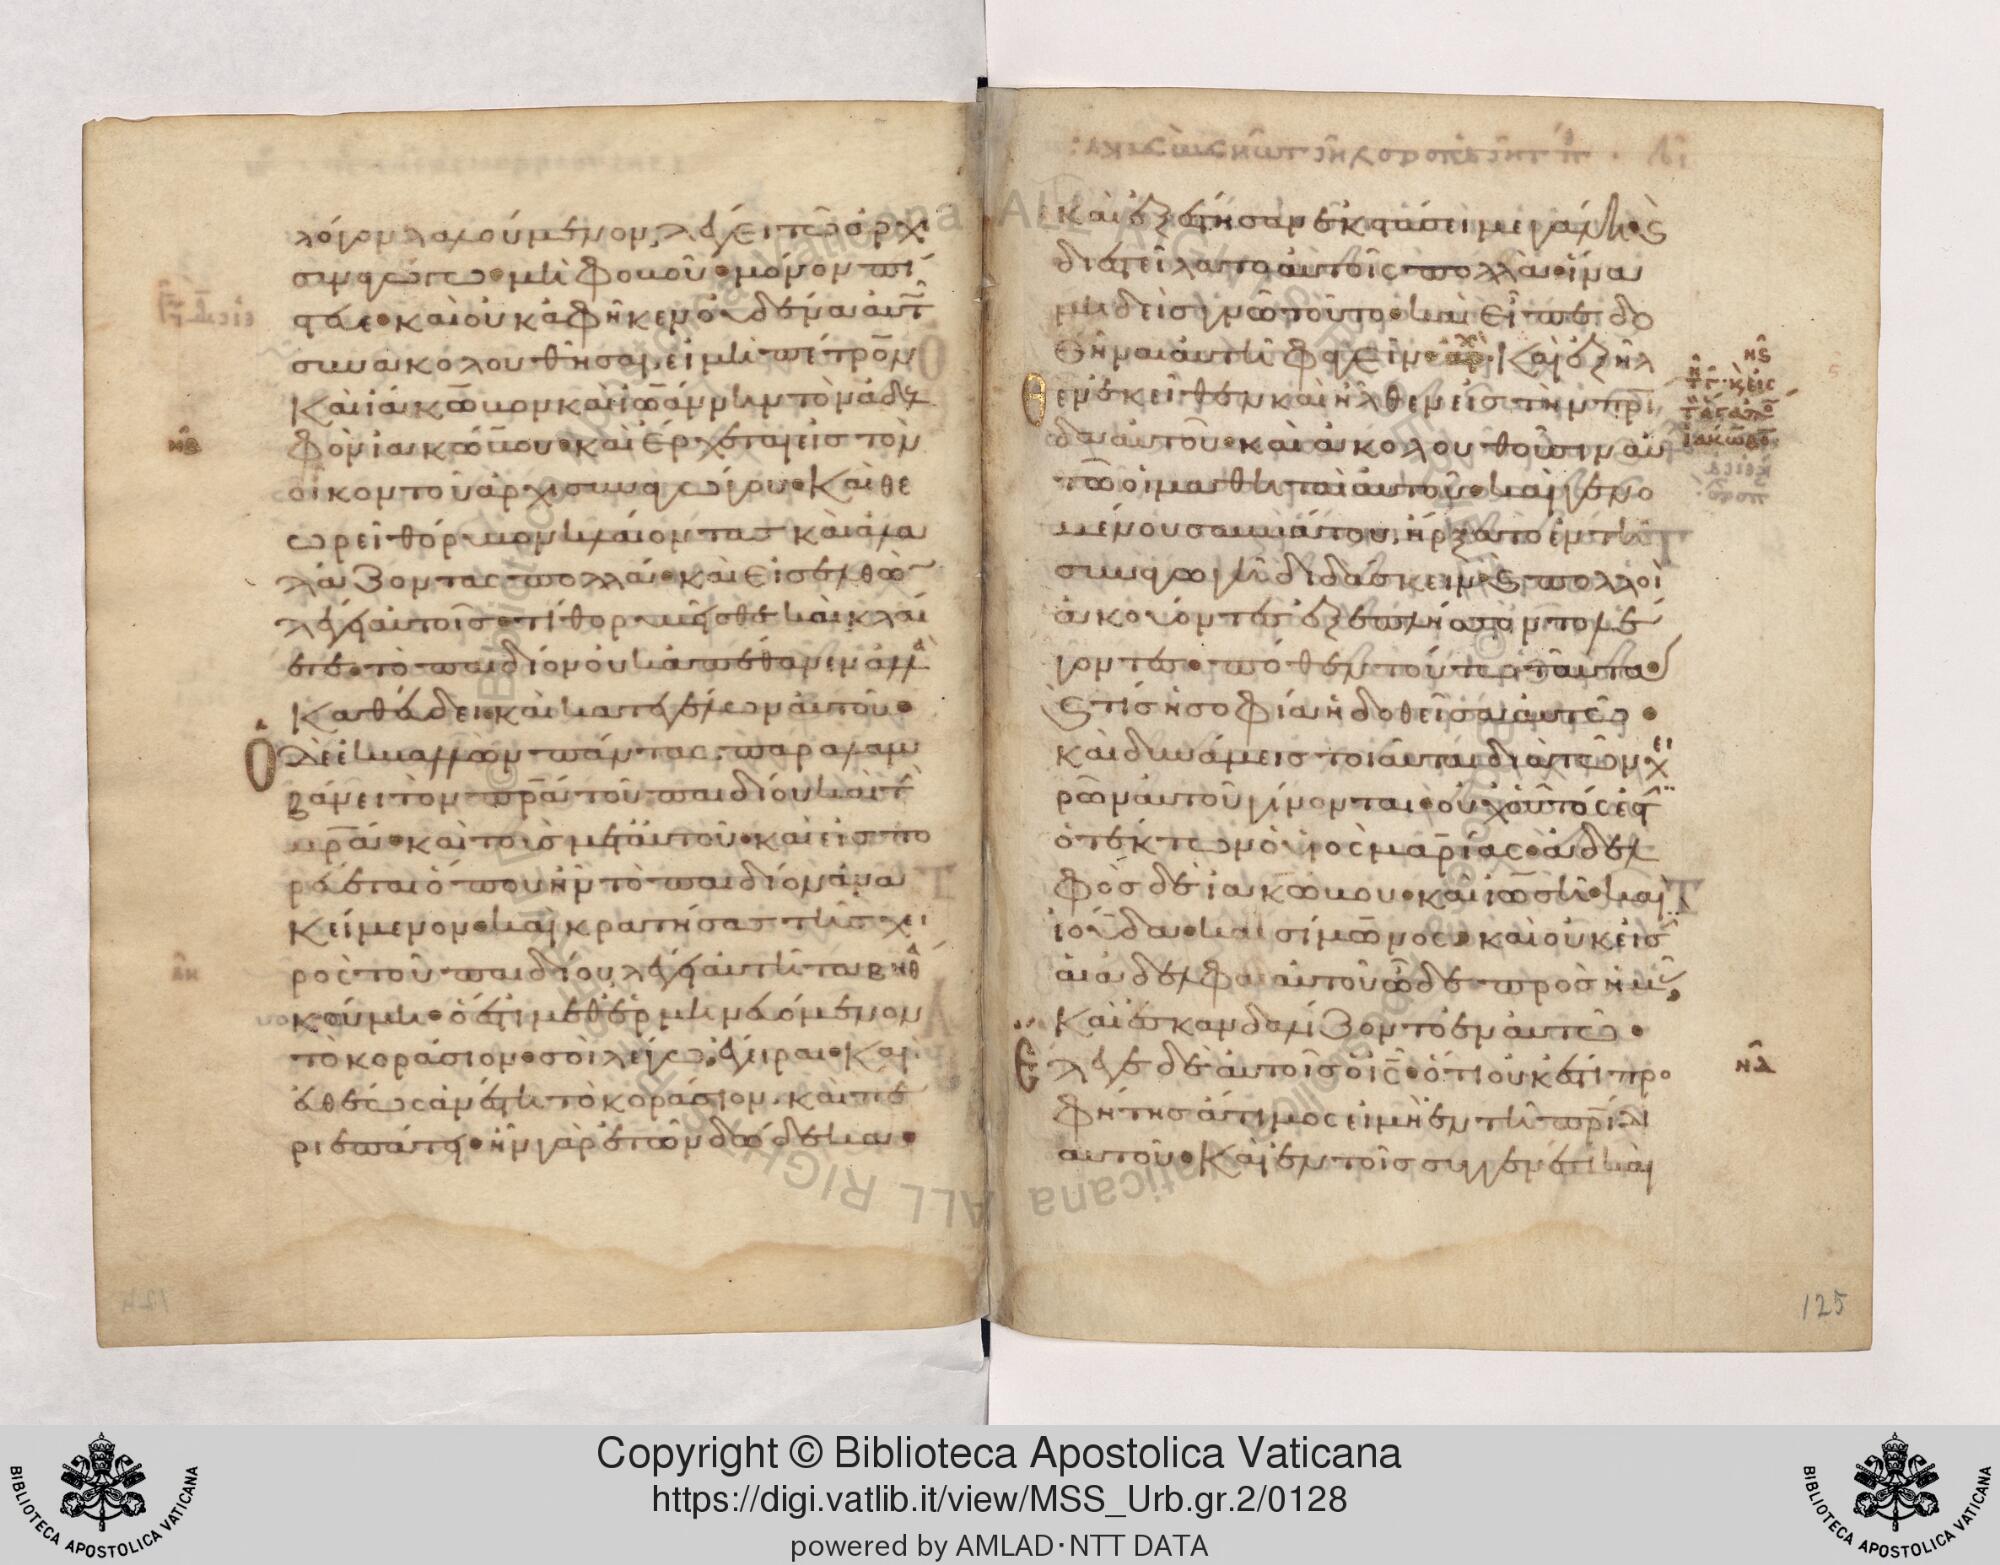 λόγον λαλούμενον, λέγει τῶ ἀρχι
συναγώγω· μὴ φοβοῦ· μόνον πί
στευε· καὶ οὐκ ἀφῆκεν οὐδένα αὐτῶ
συνακολουθῆσαι, εἰ μὴ πέτρον
καὶ ἰάκωβον καὶ ἰωάννην τὸν ἀδελ
φὸν ἰακώβου· καὶ ἔρχεται εἰς τὸν
οἶκον τοῦ ἀρχισυναγώγου· Καὶ θε
ωρεῖ θόρυβον κλαίοντας καὶ ἀλα
λάζοντας πολλά· καὶ εἰσελθὼν
λέγει αὐτοῖς· τί θορυβεῖσθε καὶ κλαί
ετε· τὸ παιδίον οὐκ ἀπέθανεν ἀλλὰ
καθεύδει· καὶ κατεγέλων αὐτοῦ·
Ὁ δὲ ἐκβαλὼν πάντας, παραλαμ
βάνει τὸν πρα τοῦ παιδίου καὶ τὴν
μρα· καὶ τοὺς μετ αὐτοῦ· καὶ εἰσπο
ρεύεται ὅπου ἦν τὸ παιδίον ἀνα
κείμενον· καὶ κρατήσας τῆς χει
ρὸς τοῦ παιδίου, λέγει αὐτῆ ταβηθὰ
κούμι· ὅ ἐστι μεθερμηνευόμενον
τὸ κοράσιον· σοὶ λέγω, ἔγειραι· Καὶ
εὐθέως ἀνέστη τὸ κοράσιον. καὶ πε
ριεπάτει· ἦν γὰρ ἐτῶν δώδεκα·
καὶ ἐξέστησαν ἐκστάσει μεγάλη· Καὶ
διεστείλατο αὐτοῖς πολλὰ· ἵνα
μηδεὶς γνῶ τοῦτο· καὶ εἶπε δο
θῆναι αὐτῆ φαγεῖν· Καὶ ἐξῆλθ
εν ἐκεῖθεν καὶ ἦλθεν εἰς τὴν πρι
δα αὐτοῦ· καὶ ἀκολουθοῦσιν αὐ
τῶ οἱ μαθηταὶ αὐτοῦ· καὶ γενο
μένου σαββάτου, ἤρξατο ἐν τῆ
συναγωγῆ διδάσκειν· Καὶ πολλοὶ
ἀκούοντες ἐξεπλήσσοντο λέ
γοντες· πόθεν τούτω ταῦτα·
Καὶ τίς ἡ σοφία ἡ δοθεῖσα αὐτῶ·
καὶ δυνάμεις τοιαῦται διὰ τῶν χει
ρῶν αὐτοῦ γίνονται· οὐχ οὗτός ἐστιν
ὁ τέκτων ὁ υἱὸς μαρίας· ἀδελ
φὸς δὲ ἰακώβου· καὶ ἰωσῆ· καὶ
ἰούδα· καὶ σίμωνος· καὶ οὐκ εἰσὶν
αἱ ἀδελφαὶ αὐτοῦ ὧδε πρὸς ἡμᾶς,
Καὶ ἐσκανδαλίζοντο ἐν αὐτῶ·
Ἔλεγε δὲ αὐτοῖς ὁ ις· ὅτι οὐκ ἔστι προ
φήτης ἄτιμος εἰ μὴ ἐν τῆ πριδι
αὐτοῦ· Καὶ ἐν τοῖς συγγενέσι καὶ
125
Copyright © Biblioteca Apostolica Vaticana
https://digi.vatlib.it/view/MSS_Urb.gr.2/0128
powered by AMLAD·NTT DATA
BIBLIOTECA APOSTOLICA VATICANA
BIBLIOTECA APOSTOLICA VATICANA